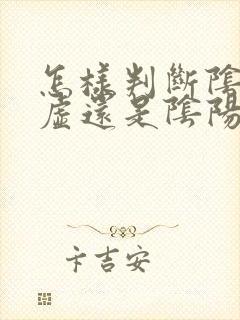 怎樣判斷陰
虛還是陰陽
卞吉安